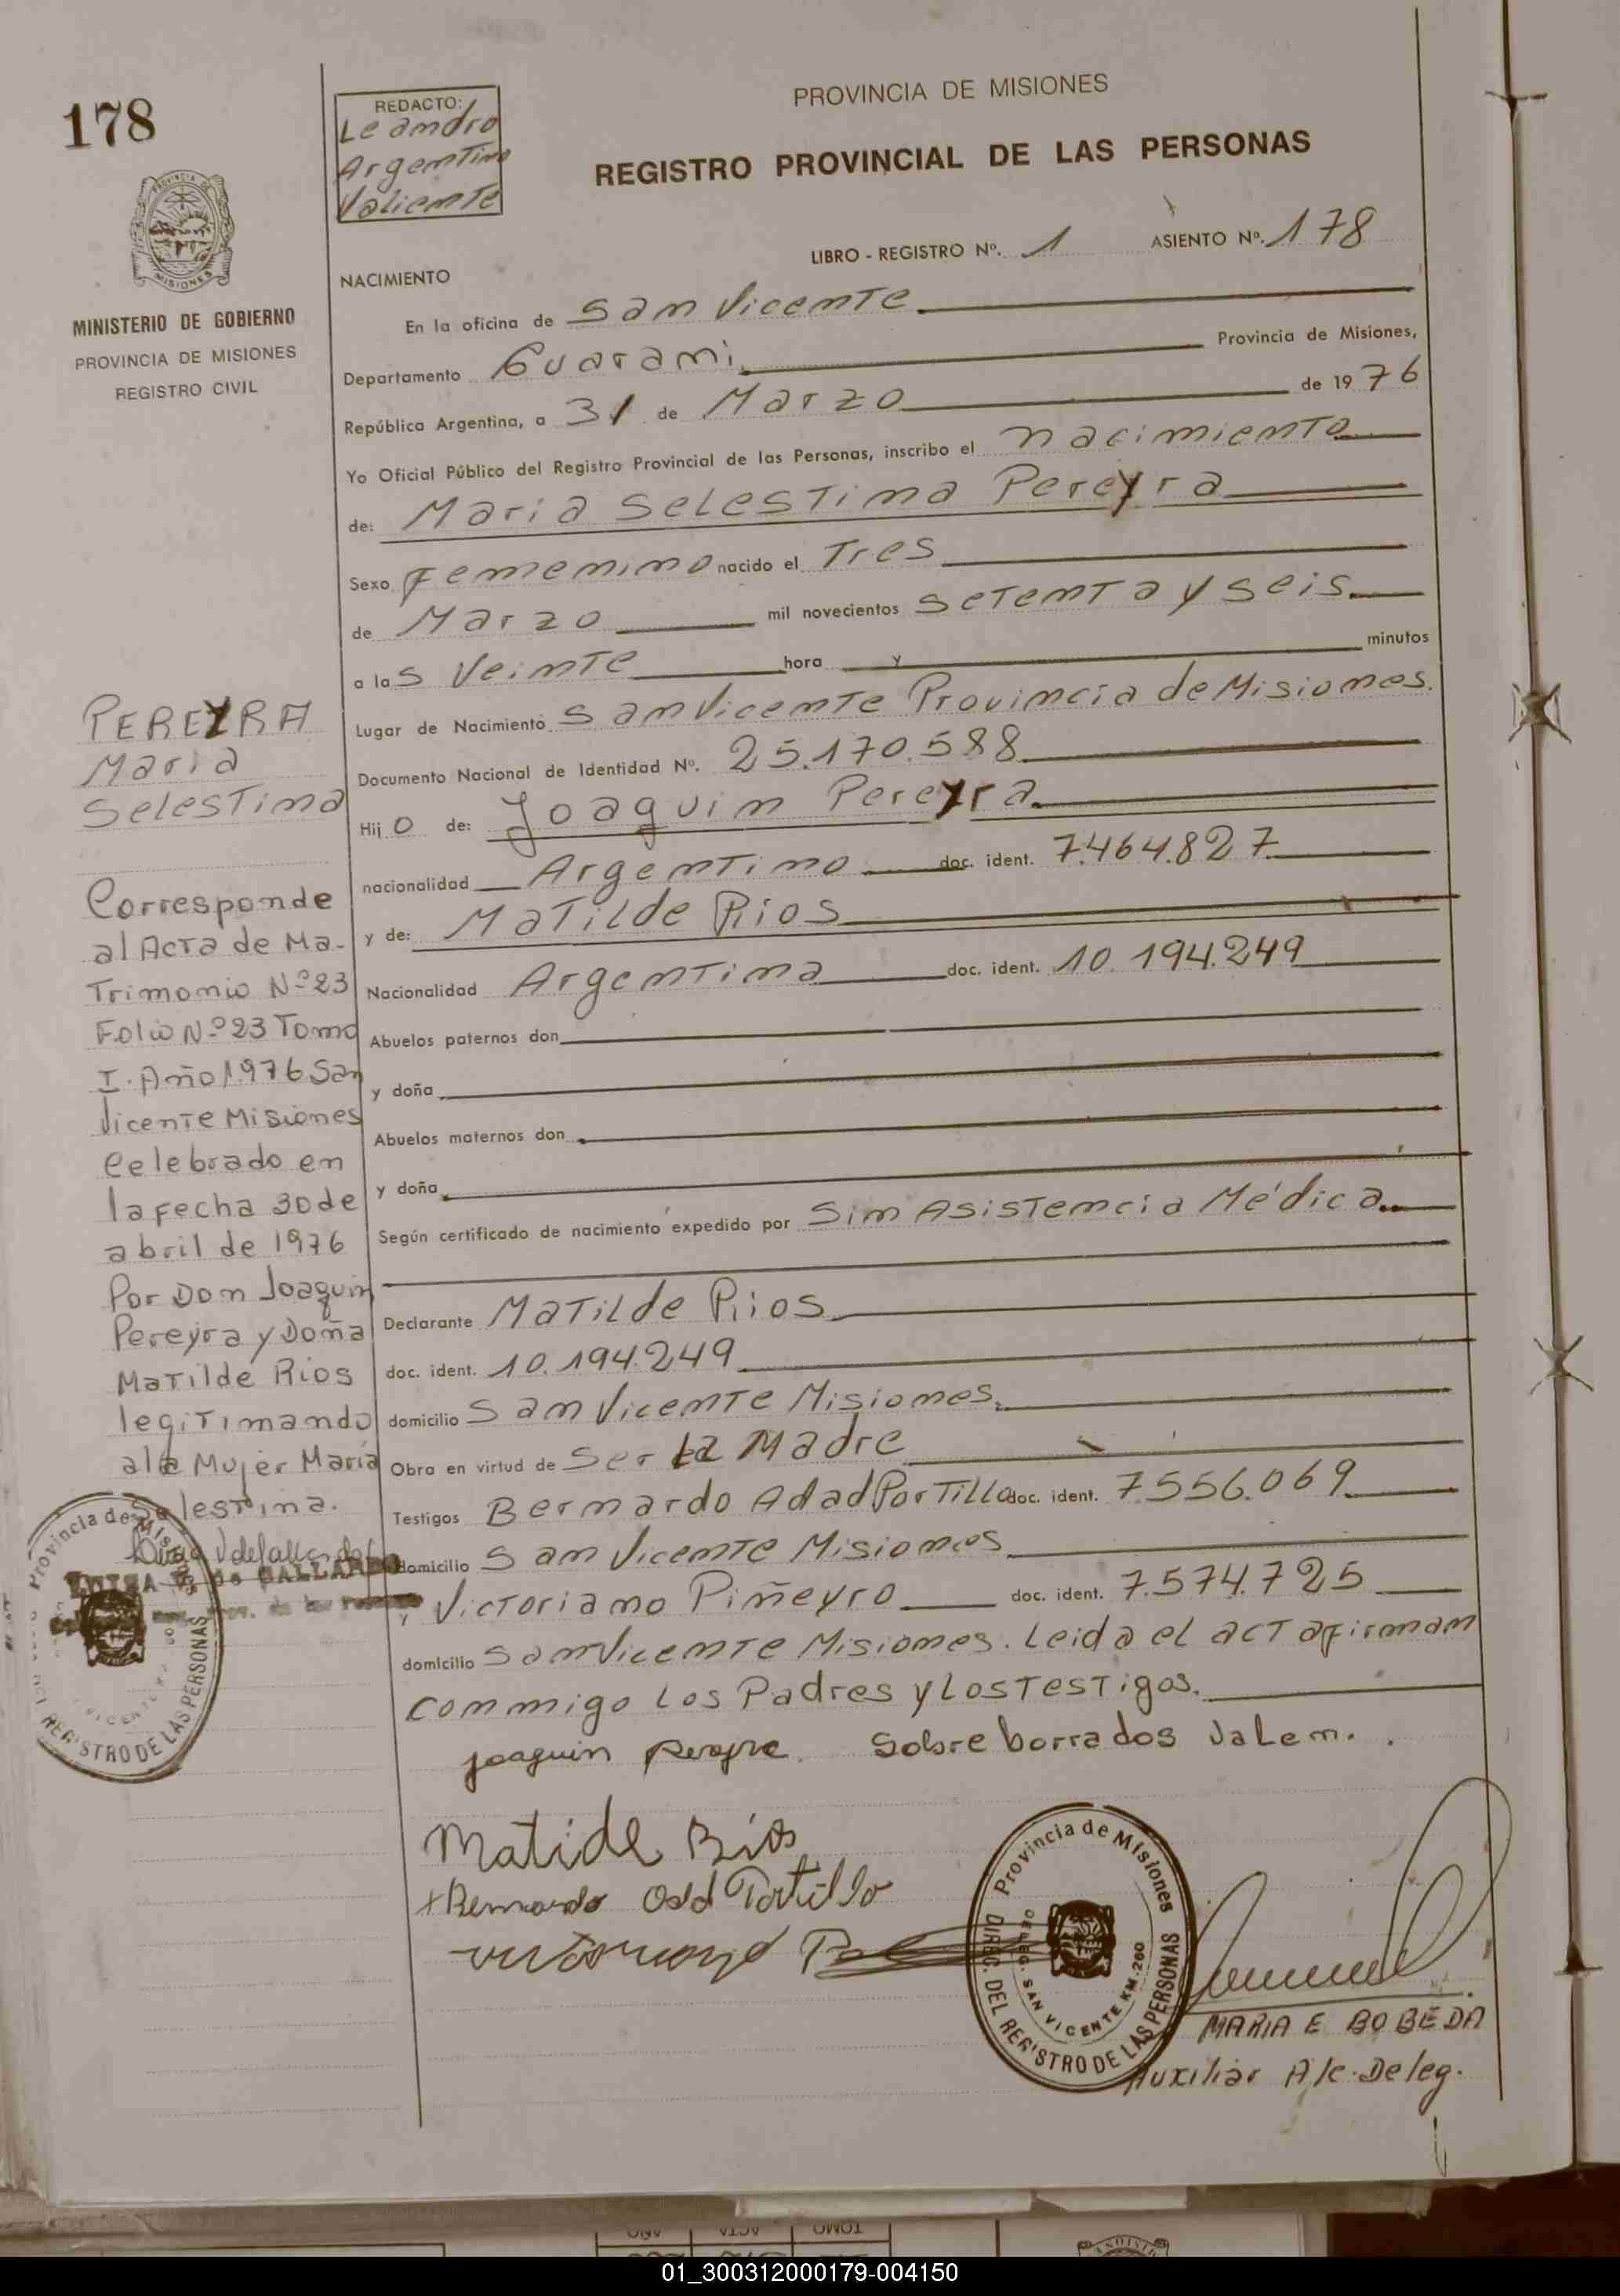 178
REDACTO:
Leandro
Argentino
Valiente
PROVINCIA DE MISIONES
REGISTRO PROVINCIAL DE LAS PERSONAS
LIBRO - REGISTRO Nº. 1 ASIENTO Nº. 178
PROVINCIA DE
MISIONES
MINISTERIO DE GOBIERNO
PROVINCIA DE MISIONES
REGISTRO CIVIL
NACIMIENTO
En la oficina de San Vicente
Departamento Guarani Provincia de Misiones,
República Argentina, a 31 de Marzo de 1976
Yo Oficial Público del Registro Provincial de las Personas, inscribo el nacimiento
de: Maria Selestina Pereyra
Sexo Femenino nacido el Tres
de Marzo mil novecientos setenta y seis
a las Veinte hora y minutos
Lugar de Nacimiento San Vicente Provincia de Misiones.
Documento Nacional de Identidad Nº. 25.170.588
Hijo de: Joaquin Pereyra
nacionalidad Argentino doc. ident. 7.464.827
y de: Matilde Rios
Nacionalidad Argentina doc. ident. 10.194.249
Abuelos paternos don
y doña
Abuelos maternos don
y doña
Según certificado de nacimiento expedido por Sin Asistencia Médica
Declarante Matilde Rios
doc. ident. 10.194.249
domicilio San Vicente Misiones.
Obra en virtud de Ser La Madre
Testigos Bernardo Adad Portillo doc. ident. 7.556.069
domicilio San Vicente Misiones
y Victoriano Piñeyro doc. ident. 7.574.725
domicilio San Vicente Misiones. Leida el acta firman
conmigo los Padres y los Testigos.
Joaquin Pereyra. Sobre borrados Valen.
Matide Rios
+Bernardo Odd Portillo
PEREYRA
Maria
Selestina
Corresponde
al Acta de Ma-
trimonio Nº 23
Folio Nº 23 Tomo
I. Año 1.976 San
Vicente Misiones
Celebrado en
la fecha 30 de
abril de 1976
Por Don Joaquin
Pereyra y Doña
Matilde Rios
legitimando
a la Mujer María
Selestina.
LUISA V. de GALLARDO
Provincia de Misiones
REGISTRO DE LAS PERSONAS
Provincia de Misiones
DIREC. DEL REGISTRO DE LAS PERSONAS
SAN VICENTE KM.260
MARIA E BOBEDA
Auxiliar A/c. Deleg.
TOMO ACTA AÑO
01_300312000179-004150